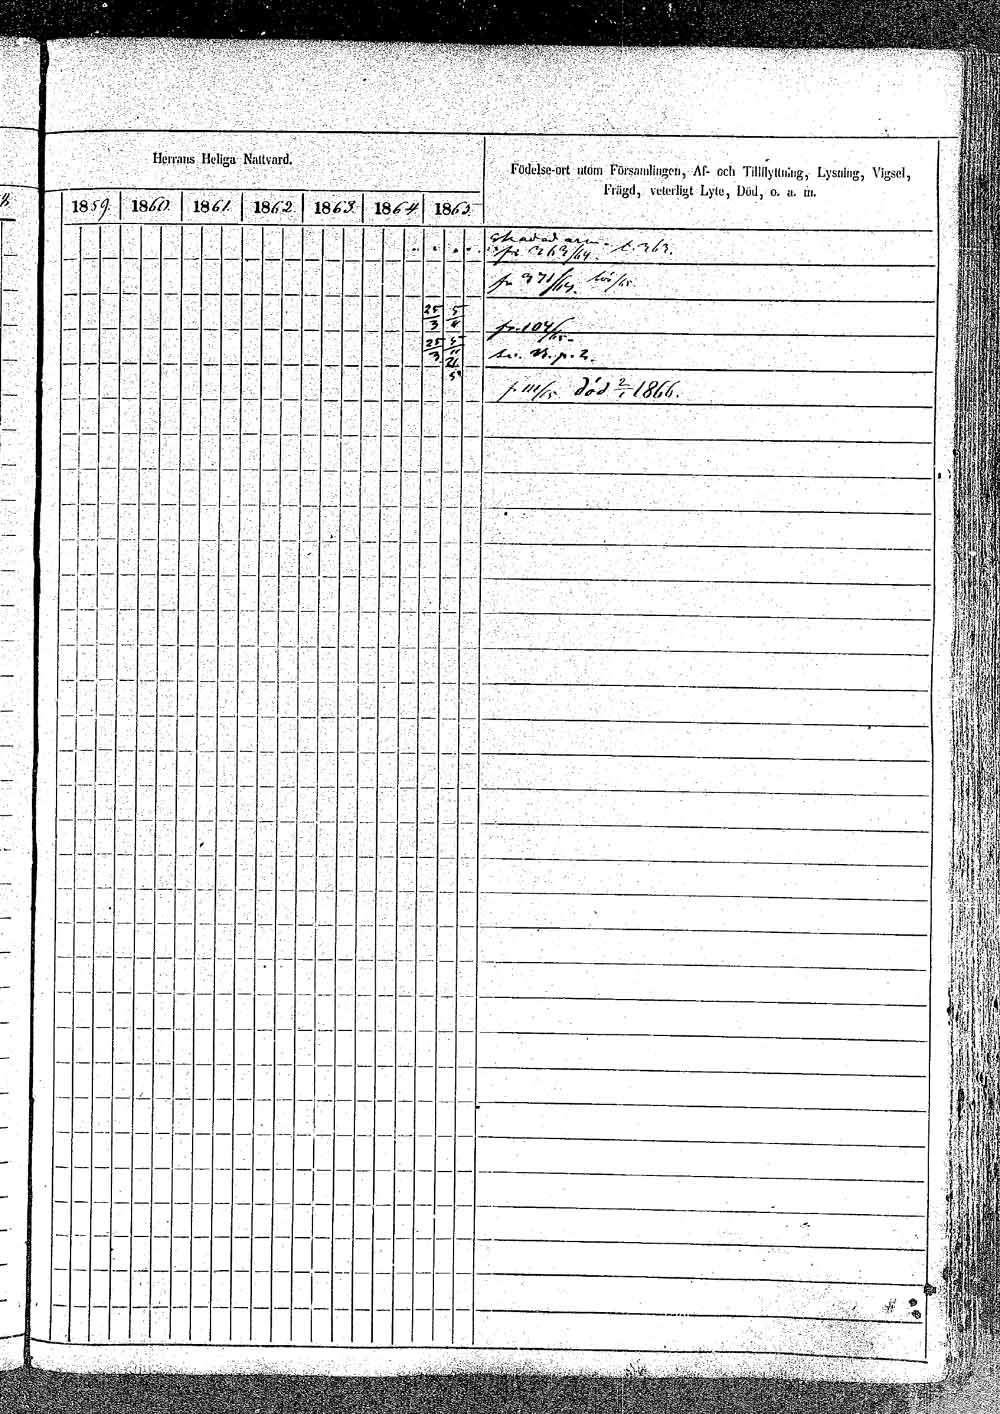 Herrans Heliga Nattvard.
Födelse-ort utom Församlingen, Af- och Tillflyttning, Lysning, Vigsel,
Frägd, veterligt Lyte, Död, o. a. m.
1859. 1860. 1861. 1862. 1863. 1864 1865
Skadad arm
fr 363/64. t. 363.
fr 371/64.
25/3 5/11
fr. 104/65
25/3 5/11
se. N. p. 2.
f. 111/65. död 2/1 1866.